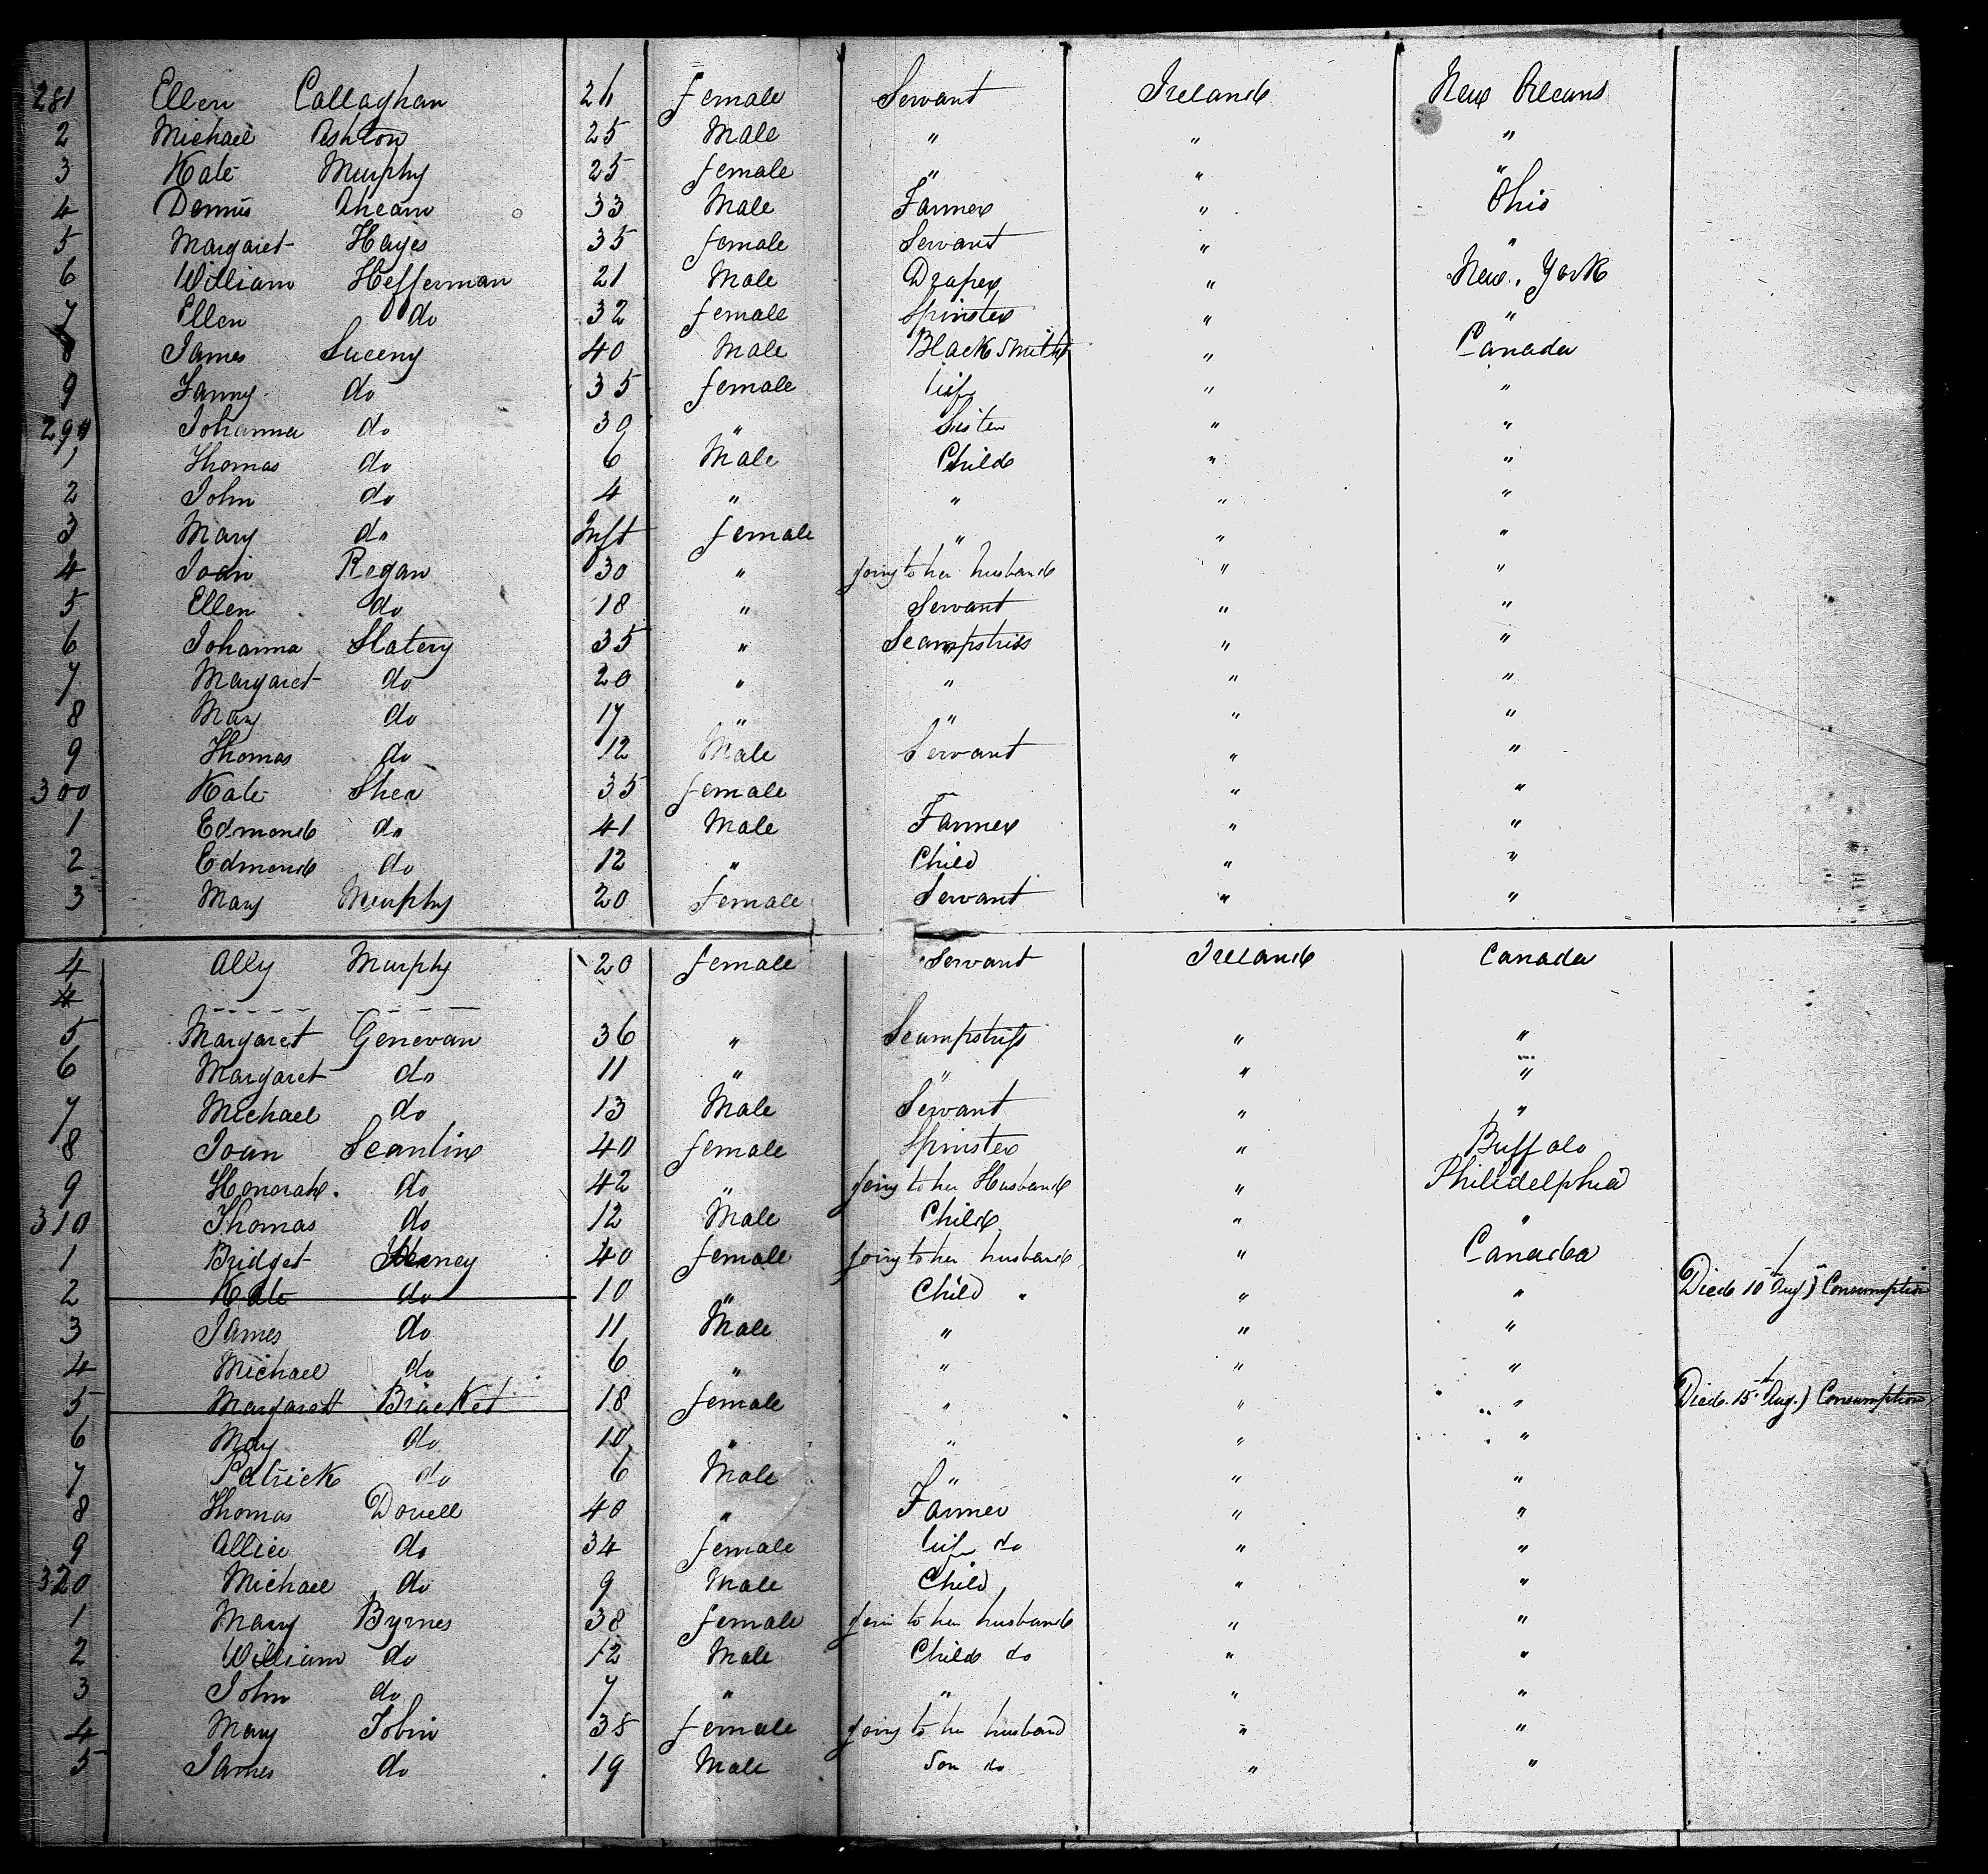 281 Ellen Callaghan 26 female Servant Ireland New Orleans
2 Michael Ashton 25 Male " " "
3 Kate Murphy 25 female " " "
4 Dennis Ahearn 33 Male Farmer " Ohio
5 Margaret Hayes 35 female Servant " "
6 William Hefferman 21 Male Draper " New York
7 Ellen do 32 female Spinster " "
8 James Sueeny 40 Male Black Smith " Canada
9 Fanny do 35 female Wife " "
290 Johanna do 30 " Sister " "
1 Thomas do 6 Male Child " "
2 John do 4 " " " "
3 Mary do Inft female " " "
4 Joan Regan 30 " going to her husband " "
5 Ellen do 18 " Servant " "
6 Johanna Slatery 35 " Seampstriss " "
7 Margaret do 20 " " " "
8 Mary do 17 " " " "
9 Thomas do 12 Male Servant " "
300 Kate Shea 35 female " "
1 Edmond do 41 Male Farmer " "
2 Edmond do 12 " Child " "
3 Mary Murphy 20 female Servant " "
4 Ally Murphy 20 female Servant Ireland Canada
4
5 Margaret Genevan 36 " Seampstriss " "
6 Margaret do 11 " " " "
7 Michael do 13 Male Servant " "
8 Joan Scanlin 40 female Spinster " Buffalo
9 Honorah do 42 " going to her Husband " Philidelphia
310 Thomas do 12 Male Child " "
1 Bridget 40 female going to her husband " Canada
2 Kate do 10 " Child " " Died 10th Aug) Consumption
3 James do 11 Male " " "
4 Michael do 6 " " " "
5 Margarett Bracket 18 female " " " Died 15th Aug.) Consumption
6 May do 10 " " " "
7 Patrick do 6 Male " " "
8 Thomas Dovell 40 " Farmer " "
9 Allice do 34 female Wife do " "
320 Michael do 9 Male Child " "
1 Mary Byrnes 38 female goin to her husband " "
2 William do 12 Male Child do " "
3 John do 7 " " " "
4 Mary Tobin 38 female going to her husband " "
5 James do 19 Male Son do " "